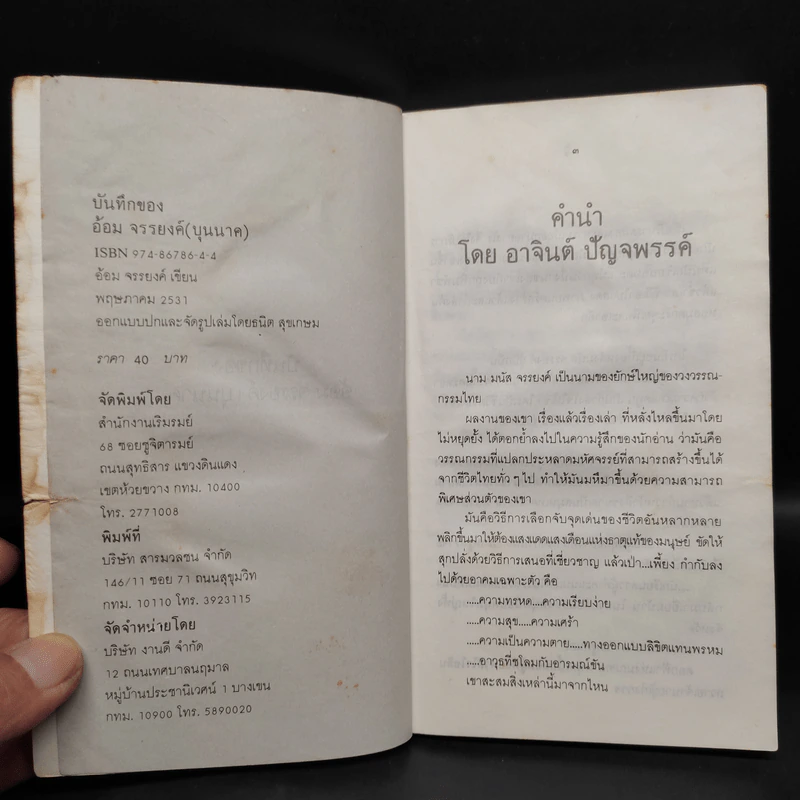 บันทึกของ
อ้อม จรรยงค์(บุนนาค)
ISBN 974-86786-4-4
อ้อม จรรยงค์ เขียน
พฤษภาคม 2531
ออกแบบปกและจัดรูปเล่มโดยธนิต สุขเกษม
ราคา 40 บาท
จัดพิมพ์โดย
สำนักงานเริมรมย์
68 ซอยชูจิตารมย์
ถนนสุทธิสาร แขวงดินแดง
เขตห้วยขวาง กทม. 10400
โทร. 2771008
พิมพ์ที่
บริษัท สารมวลชน จำกัด
146/11 ซอย 71 ถนนสุขุมวิท
กทม. 10110 โทร. 3923115
จัดจำหน่ายโดย
บริษัท งานดี จำกัด
12 ถนนเทศบาลนฤมาล
หมู่บ้านประชานิเวศน์ 1 บางเขน
กทม. 10900 โทร. 5890020
๓
คำนำ
โดย อาจินต์ ปัญจพรรค์
นาม มนัส จรรยงค์ เป็นนามของยักษ์ใหญ่ของวงวรรณ-
กรรมไทย
ผลงานของเขา เรื่องแล้วเรื่องเล่า ที่หลั่งไหลขึ้นมาโดย
ไม่หยุดยั้ง ได้ตอกย้ำลงไปในความรู้สึกของนักอ่าน ว่ามันคือ
วรรณกรรมที่แปลกประหลาดมหัศจรรย์ที่สามารถสร้างขึ้นได้
จากชีวิตไทยทั่วๆไป ทำให้มันมหึมาขึ้นด้วยความสามารถ
พิเศษส่วนตัวของเขา
มันคือวิธีการเลือกจับจุดเด่นของชีวิตอันหลากหลาย
พลิกขึ้นมาให้ต้องแสงแดดแสงเดือนแห่งธาตุแท้ของมนุษย์ ขัดให้
สุกปลั่งด้วยวิธีการเสนอที่เชี่ยวชาญ แล้วเป่า...เพี้ยง กำกับลง
ไปด้วยอาคมเฉพาะตัว คือ
.....ความทรหด....ความเรียบง่าย
....ความสุข.....ความเศร้า
....ความเป็นความตาย.....ทางออกแบบลิขิตแทนพรหม
.....อาวุธที่ชโลมกับอารมณ์ขัน
เขาสะสมสิ่งเหล่านี้มาจากไหน